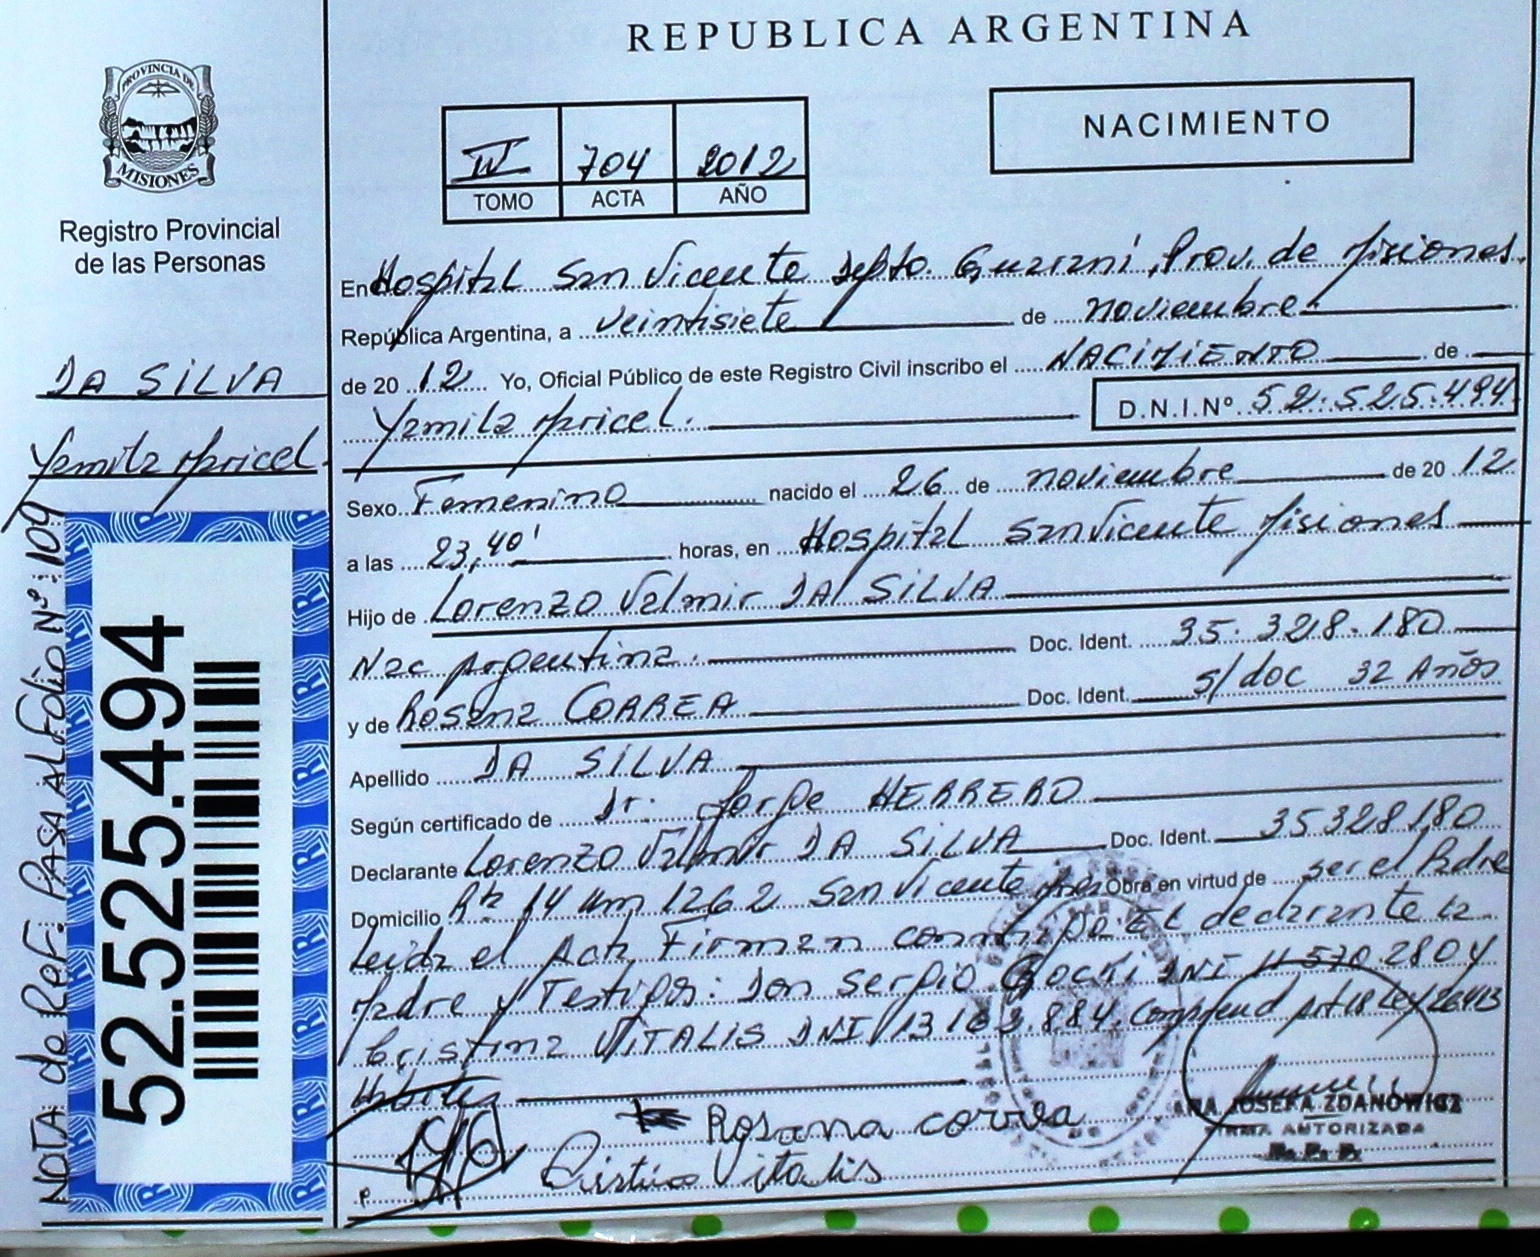 REPUBLICA ARGENTINA
PROVINCIA DE
MISIONES
Registro Provincial
de las Personas
NACIMIENTO
IV 704 2012
TOMO ACTA AÑO
DA SILVA
Yamila Maricel
NOTA de Ref: PASA AL Folio Nº: 109
52.525.494
En Hospital San Vicente Depto. Guaraní, Prov. de Misiones.
República Argentina, a veintisiete de noviembre
de 20 12 Yo, Oficial Público de este Registro Civil inscribo el NACIMIENTO de
Yamila Maricel. D.N.I.Nº 52.525.494
Sexo Femenino nacido el 26 de noviembre de 20 12
a las 23,40' horas, en Hospital San Vicente Misiones
Hijo de Lorenzo Valmir DA SILVA
Nac Argentina. Doc. Ident. 35.328.180
y de Rosana CORREA Doc. Ident. s/doc 32 Años
Apellido DA SILVA
Según certificado de Dr. Jorge HERRERO
Declarante Lorenzo Valmir DA SILVA Doc. Ident. 35328180
Domicilio Rta 14 Km 1262 San Vicente Mnes Obra en virtud de ser el Padre
Leida el Acta Firman conmigo EL declarante la
Madre y Testigos: Don Sergio DNI 11.570.280 y
Cristina VITALIS DNI 13.163.884. Comprend Art 18 Ley 26413
Rosana correa
Cristina Vitalis
ANA JOSEFA ZDANOWICZ
FIRMA AUTORIZADA
R. P. P.